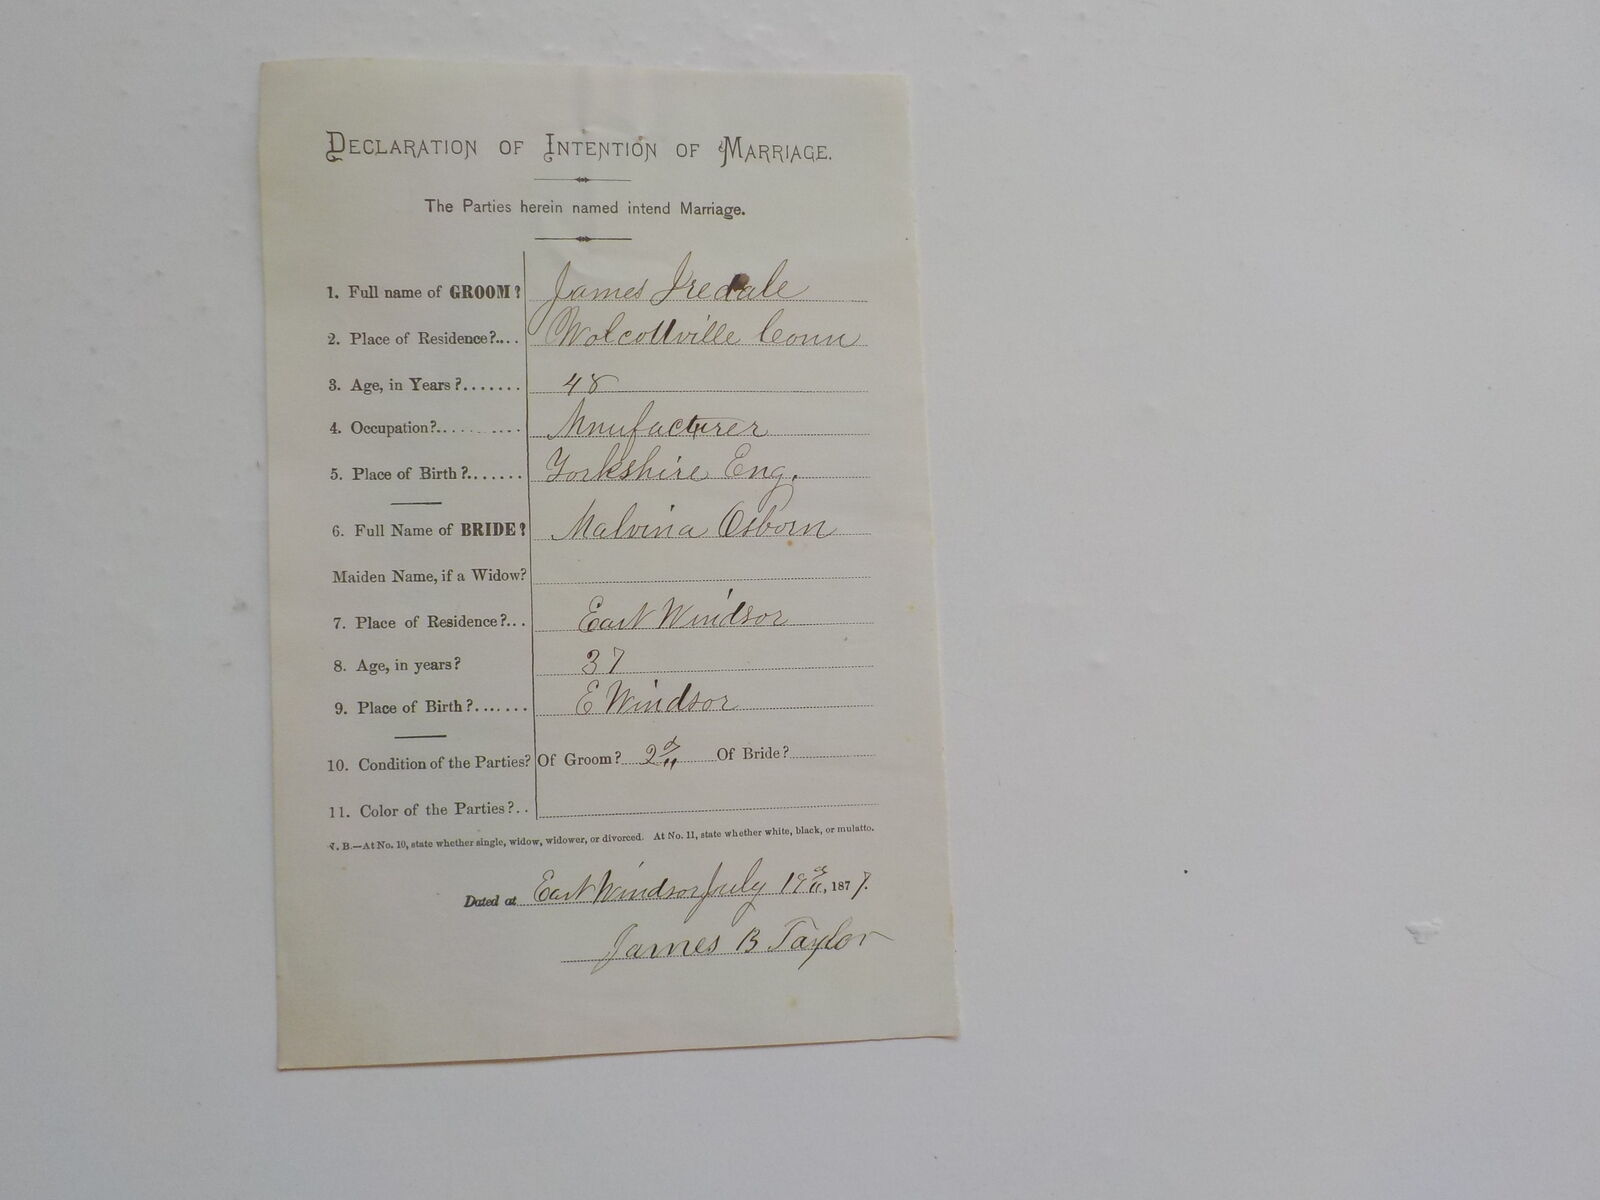 DECLARATION OF INTENTION OF MARRIAGE.
The Parties herein named intend Marriage.
1. Full name of GROOM? James Iredale
2. Place of Residence?.... Wolcottville Conn
3. Age, in Years?....... 48
4. Occupation?.......... Mnufacturer
5. Place of Birth?....... Yorkshire Eng.
6. Full Name of BRIDE? Malvina Osborn
Maiden Name, if a Widow?
7. Place of Residence?... East Windsor
8. Age, in years? 37
9. Place of Birth?....... E Windsor
10. Condition of the Parties? Of Groom? 2d Of Bride?
11. Color of the Parties?..
N. B.—At No. 10, state whether single, widow, widower, or divorced. At No. 11, state whether white, black, or mulatto.
Dated at East Windsor July, 1877.
James B Taylor